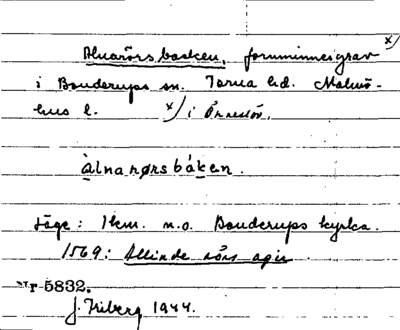 Alnarörs backen, fornminnesgrav x)
i Bonderups sn. Torna hd. Malmö-
hus l. x) i Önneslöv.
àlnarørs báken.
Läge: 1 km. n.o. Bonderups kyrka.
1569: Allinde rörs agir
Nr 5832.
J. Friberg 1944.